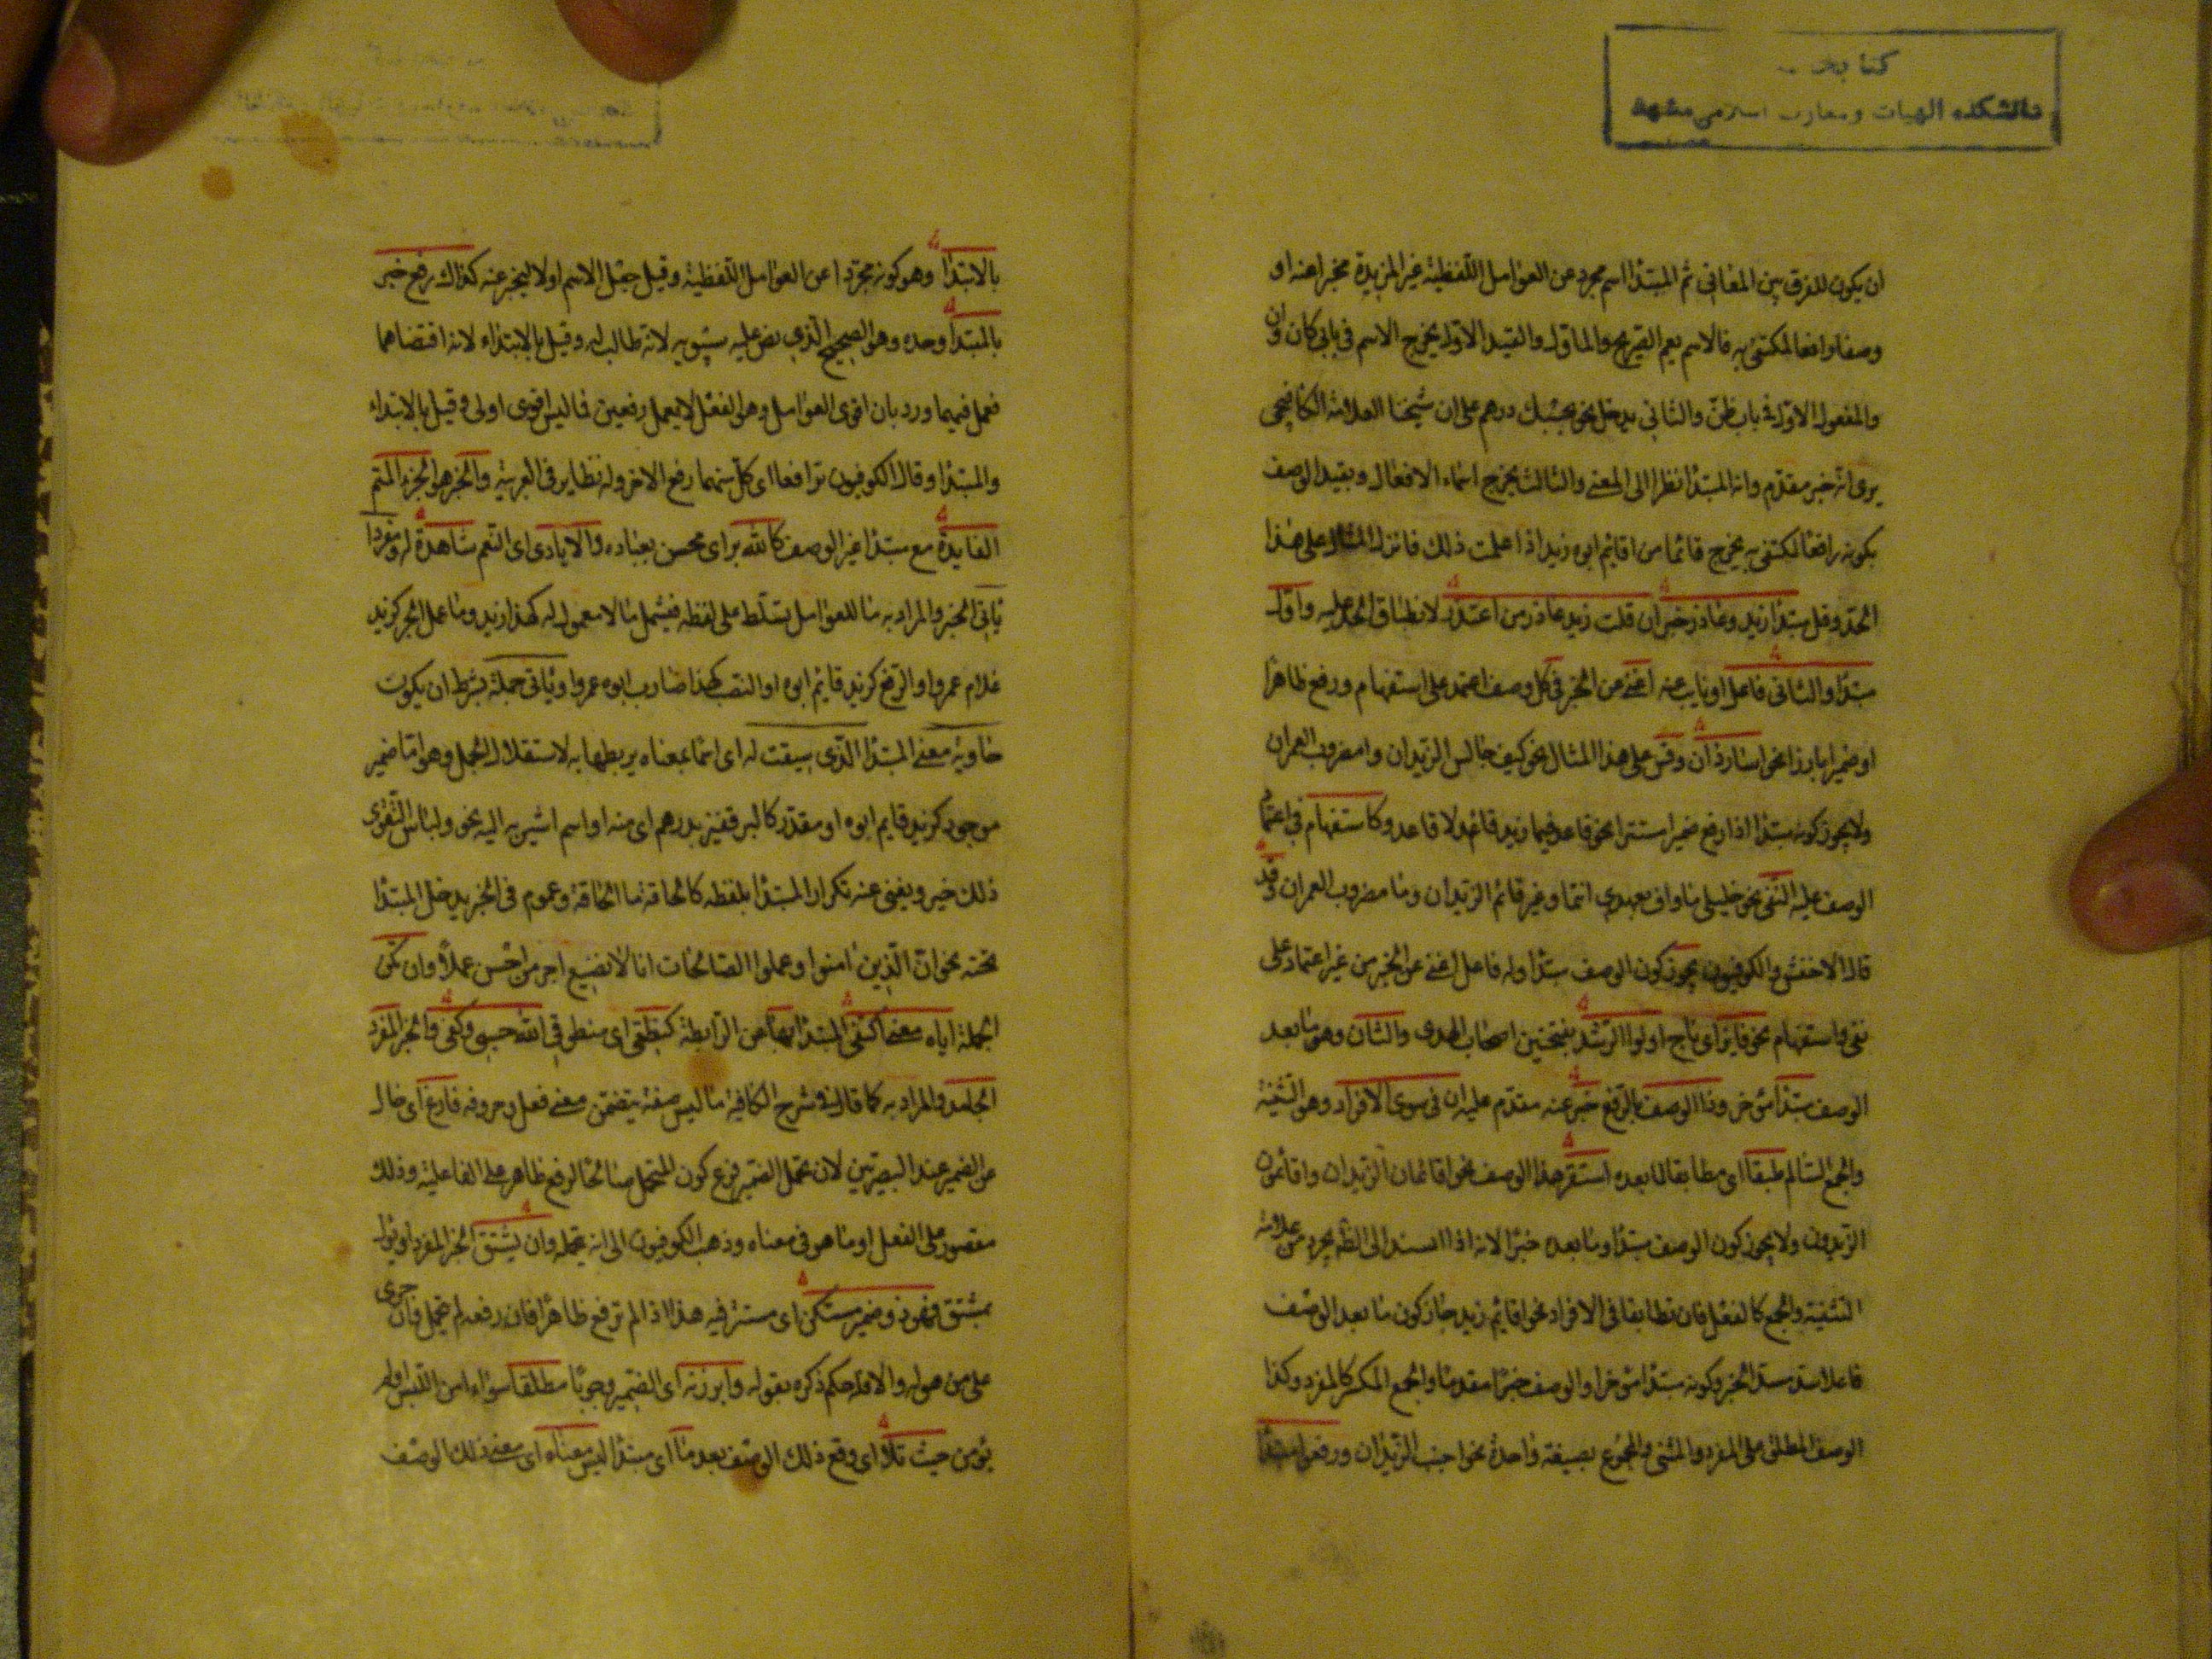 كتابخانه
دانشكده الهيات ومعارف اسلامى مشهد
ان يكون للفرق بين المعانى ثم المبتدا اسم مجرد عن العوامل اللفظية غير المزيدة مخبرا عنه او
وصفا رافعا لمكتفى به فالاسم يعم الصريح والماول والقيد الاول يخرج الاسم فى بابى كان وان
والمفعول الاول فى باب ظن والثانى يدخل نحو بحسبك درهم على ان شيخنا العلامة الكافيجى
يرى انه خبر مقدم وانه المبتدا نظرا الى المعنى والثالث يخرج اسماء الافعال وبقيد الوصف
بكونه رافعا لمكتفى به يخرج قائما من اقائم ابوه زيد اذا علمت ذلك فانزل المثال على هذا
الحد وقل مبتدا زيد وعاذر خبر ان قلت زيد عاذر من اعتذر لانطباق الحد عليه واول
مبتدا والثانى فاعل او نايب عنه اغنى عن الخبر فى كل وصف اعتمد على استفهام ورفع ظاهرا
او ضميرا بارزا نحو اسار ذان وقس على هذا المثال نحو كيف جالس الزيدان وامضروب العمران
ولا يجوز كونه مبتدا اذا رفع ضميرا مستترا نحو قاعد فى ما زيد قائم ولا قاعد وكاستفهام فى اعتماد
الوصف عليه النفى نحو خليلى ما واف بعهدى انتما وغير قائم الزيدان وما مضروب العمران وقد
قال الاخفش والكوفيون يجوز كون الوصف مبتدا وله فاعل اغنى عن الخبر من غير اعتماد على
نفى واستفهام نحو فايز اى ناج اولوا الرشد بفتحتين اصحاب الهدى والثان وهو ما بعد
الوصف مبتدا مؤخر وذا الوصف بالرفع خبر عنه مقدم عليه ان فى سوى الافراد وهو التثنية
والجمع السالم طبقا اى مطابقا لما بعده استقر هذا الوصف نحو اقائمان الزيدان واقائمون
الزيدون ولا يجوز كون الوصف مبتدا وما بعده خبرا لانه اذا اسند الى الظ يجرد عن علامة
التثنية والجمع كالفعل فان تطابقا فى الافراد نحو اقايم زيد جاز كون ما بعد الوصف
فاعلا سد مسد الخبر وكونه مبتدا مؤخرا والوصف خبرا مقدما والجمع المكسر كالمفرد وكذا
الوصف المطلق على المفرد والمثنى والمجموع بصيغة واحدة نحو اجنب الزيدان ورفعوا مبتدا
بالابتدا وهو كونه مجردا عن العوامل اللفظية وقيل جعل الاسم اولا ليخبر عنه كذاك رفع خبر
بالمبتدا وحده وهو الصحيح الذى نص عليه سيبويه لانه طالب له وقيل بالابتداء لانه اقتضاهما
فعمل فيهما ورد بان اقوى العوامل وهو الفعل لا يعمل رفعين فما ليس اقوى اولى وقيل بالابتداء
والمبتدا وقال الكوفيون ترافعا اى كل منهما رفع الاخر وله نظاير فى العربية والخبر هو الجزء المتم
الفايدة مع مبتدا غير الوصف كالله بر اى محسن بعباده والايادى اى النعم شاهدة له ومفردا
ياتى الخبر والمراد به ما للعوامل تسلط على لفظه فيشمل ما لا معمول له كهذا زيد وما عمل الجر كزيد
غلام عمرو او الرفع كزيد قايم ابوه او النصب كهذا ضارب ابوه عمروا وياتى جملة بشرط ان يكون
حاوية معنى المبتدا الذى سيقت له اى اسما بمعناه يربطها به لاستقلال الجمل وهو اما ضمير
موجود كزيد قايم ابوه او مقدر كالبر قفيز بدرهم اى منه او اسم اشير به اليه نحو ولباس التقوى
ذلك خير ويغنى عنه تكرار المبتدا بلفظه كالحاقة ما الحاقة وعموم فى الخبر يدخل المبتدا
تحته نحو ان الذين امنوا وعملوا الصالحات انا لا نضيع اجر من احسن عملا وان تكن
الجملة اياه معنى اكتفى المبتدا بها عن الرابطة كنطقى اى منطوقى الله حسبى وكفى والخبر المفرد
الجامد والمراد به كما قال فى شرح الكافية ما ليس صفة يتضمن معنى فعل وحروفه فارغ اى خال
من الضمير عند البصريين لان تحمل الضمير فرع كون المتحمل صالحا لرفع ظاهر على الفاعلية وذلك
مقصور على الفعل او ما هو فى معناه وذهب الكوفيون الى انه يتحمله وان يشتق الخبر المفرد او يؤول
بمشتق فهو ذو ضمير مستكن اى مستتر فيه هذا اذا لم ترفع ظاهرا فان رفعه لم يتحمل فان جرى
على من هو له والا فله حكم ذكره بقوله وابرزنه اى الضمير وجوبا مطلقا سواء امن اللبس او لم
يؤمن حيث تلا اى وقع ذلك الوصف بعد ما اى مبتدا ليس معناه اى معنى ذلك الوصف